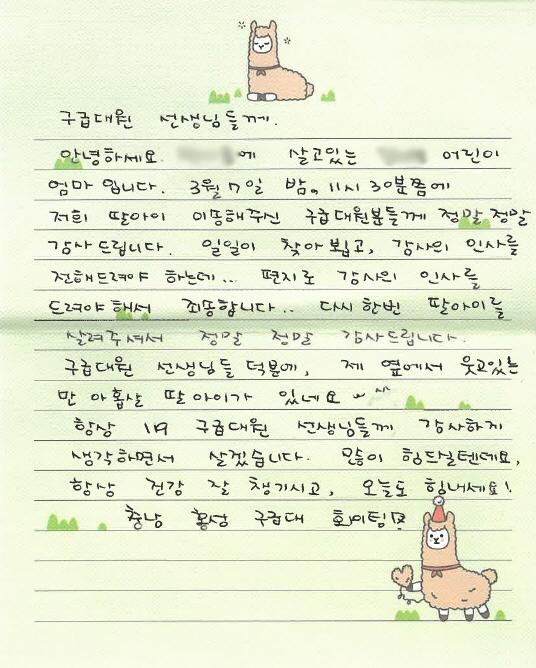 구급대원 선생님들께.
안녕하세요. 에 살고있는 어린이
엄마 입니다. 3월 7일 밤. 11시 30분쯤에
저희 딸아이 이송해주신 구급대원분들께 정말 정말
감사 드립니다. 일일이 찾아 뵙고, 감사의 인사를
전해드려야 하는데... 편지로 감사의 인사를
드려야 해서 죄송합니다.. 다시 한번 딸아이를
살려주셔서 정말 정말 감사드립니다.
구급대원 선생님들 덕분에, 제 옆에서 웃고있는
만 아홉살 딸 아이가 있네요
항상 119 구급대원 선생님들께 감사하게
생각하면서 살겠습니다. 많이 힘드실텐데요,
항상 건강 잘 챙기시고, 오늘도 힘내세요!
충남 홍성 구급대 화이팅!!